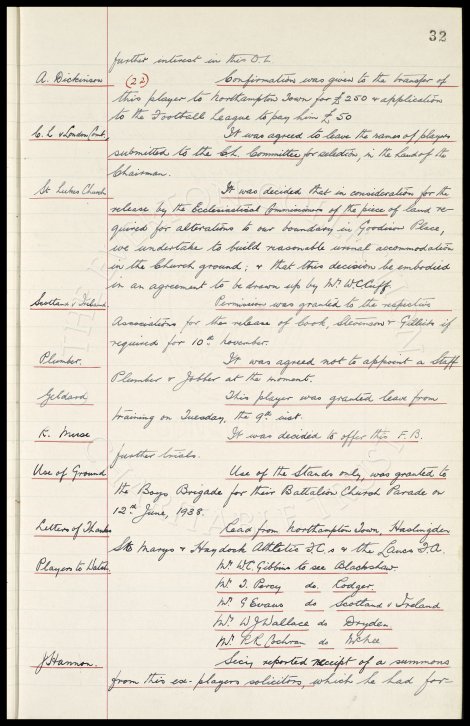 32
further interest in this O.L.
A. Dickinson (22) Confirmation was given to the transfer of
this player to Northampton Town for £250 & application
to the Football League to pay him £50
C.L. & London Comb. It was agreed to leave the names of players
submitted to the C.L. Committee for selection, in the hand of the
Chairman.
St Lukes Church It was decided that in consideration for the
release by the Ecclesiastical Commissioners of the piece of land re-
quired for alterations to our boundary in Goodison Place,
we undertake to build reasonable urinal accommodation
in the Church ground; & that this decision be embodied
in an agreement to be drawn up by Mr. W.C. Cuff.
Scotland v Ireland Permission was granted to the respective
Associations for the release of Cook, Stevenson & Gillick if
required for 10th November.
Plumber. It was agreed not to appoint a Staff
Plumber & Jobber at the moment.
Geldard This player was granted leave from
training on Tuesday, the 9th inst.
K. It was decided to offer this F.B.
further trials.
Use of Ground Use of the Stands only, was granted to
the Boys Brigade for their Battalion Church Parade on
12th June, 1938.
Letters of Thanks Read from Northampton Town, Haslingden
St Marys & Haydock Athletic F.C.s & the Lancs F.A.
Players to Watch. Mr. W.C. Gibbins to see Blackshaw.
Mr. T. Percy do. Rodger.
Mr. G Evans do Scotland v Ireland
Mr. W J Wallace do Dryden
Mr. R.R. Cochran do McKee
J Hannon. Secy. reported receipt of a summons
from this ex-players solicitors, which he had for-